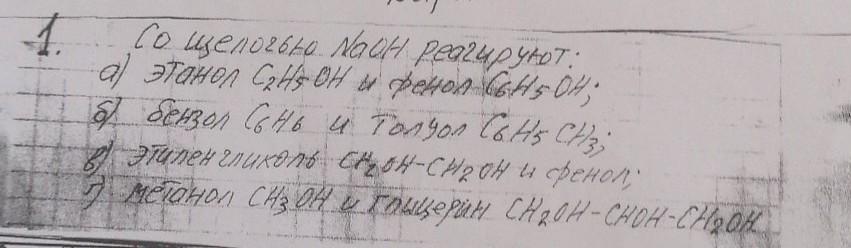 1. Со щелочью NaOH реагируют:
а) этанол C₂H₅OH и фенол C₆H₅OH;
б) бензол C₆H₆ и толуол C₆H₅CH₃;
в) этиленгликоль CH₂OH-CH₂OH и фенол;
г) метанол CH₃OH и глицерин CH₂OH-CHOH-CH₂OH